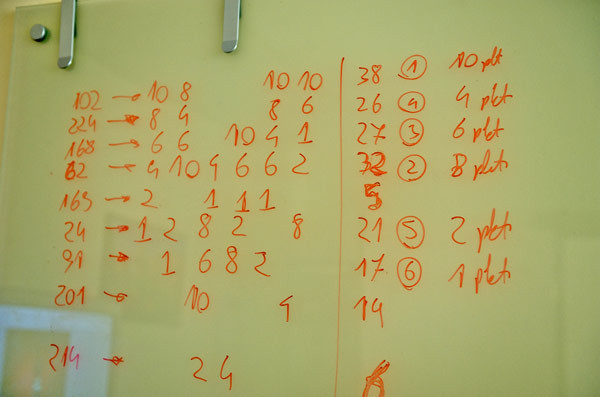 102 → 10 8 10 10 38 ① 10 pkt
224 → 8 4 8 6 26 ④ 4 pkt
168 → 6 6 10 4 1 27 ③ 6 pkt
82 → 4 10 4 6 6 2 32 ② 8 pkt
165 → 2 1 1 1 5
24 → 1 2 8 2 8 21 ⑤ 2 pkt
91 → 1 6 8 2 17 ⑥ 1 pkt
201 → 10 4 14
214 → 2 4 6